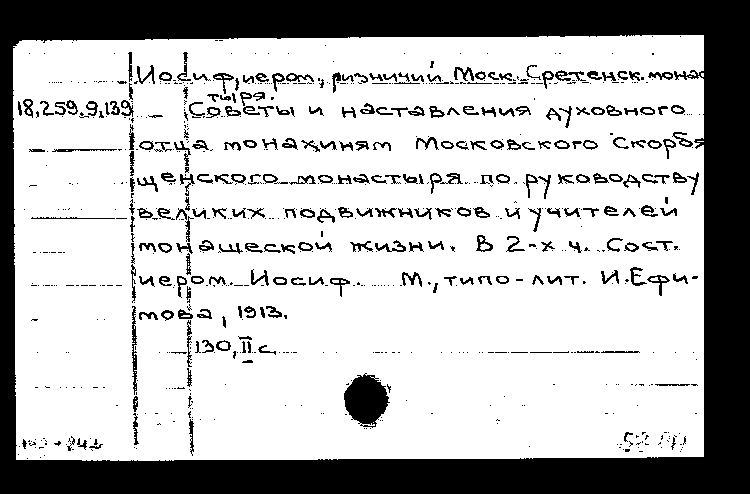 Иосиф, иером., ризничий Моск. Сретенск. монас
тыря.
18.259.9.139 Советы и наставления духовного
отца монахиням Московского Скорбя
щенского монастыря по руководству
великих подвижников и учителей
монашеской жизни. В 2-х ч. Сост.
иером. Иосиф. М., типо-лит. И.Ефи-
мова, 1913.
130, II с.